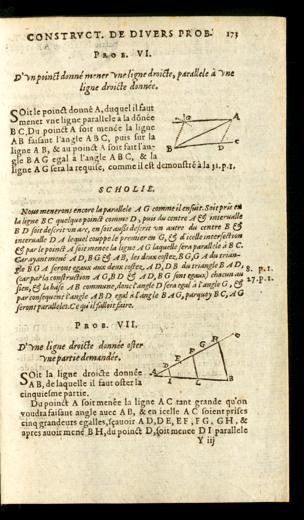 CONSTRVCT. DE DIVERS PROB. 173
PROB. VI.
D'vn poinct donné mener vne ligne droicte, parallele à vne
ligne droicte donnée.
SOit le poinct donné A, duquel il faut
mener vne ligne parallele à la dōnée
BC, Du poinct A soit menée la ligne
AB faisant l'angle ABC, puis sur la
ligne AB, & au poinct A soit fait l'an-
gle BAG egal à l'angle ABC, & la
ligne AG sera la requise, comme il est demonstré à la 31. p. 1.
G A
B D C
SCHOLIE.
Nous menerons encore la parallele AG comme il ensuit. Soit pris en
la ligne BC quelque poinct comme D, puis du centre A & interualle
BD soit descrit vn arc, en soit aussi descrit vn autre du centre B &
interualle DA lequel couppe le premier en G, & d'icelle intersection
& par le poinct A soit menée la ligne AG laquelle sera parallele à BC.
Car ayant mené AD, BG & AB, les deux costez, BG, GA du trian-
gle BGA seront egaux aux deux costez, AD, DB du triangle BAD,
(car par la construction AG, BD & AD, BG sont egaux) chacun au
sien, & la base AB commune, donc l'angle D sera egal à l'angle G, &
par consequent l'angle ABD egal à l'angle BAG, parquoy BC, AG
seront paralleles. Ce qu'il falloit faire.
8. p. 1.
27. p. 1.
PROB. VII.
D'vne ligne droicte donnée oster
vne partie demandée.
SOit la ligne droicte donnée
AB, de laquelle il faut oster la
cinquiesme partie.
A D E F G C
I L B
Du poinct A soit menée la ligne AC tant grande qu'on
voudra faisant angle auec AB, & en icelle AC soient prises
cinq grandeurs egalles, sçauoir AD, DE, EF, FG, GH, &
apres auoir mené BH, du poinct D, soit menée DI parallele
Y iij